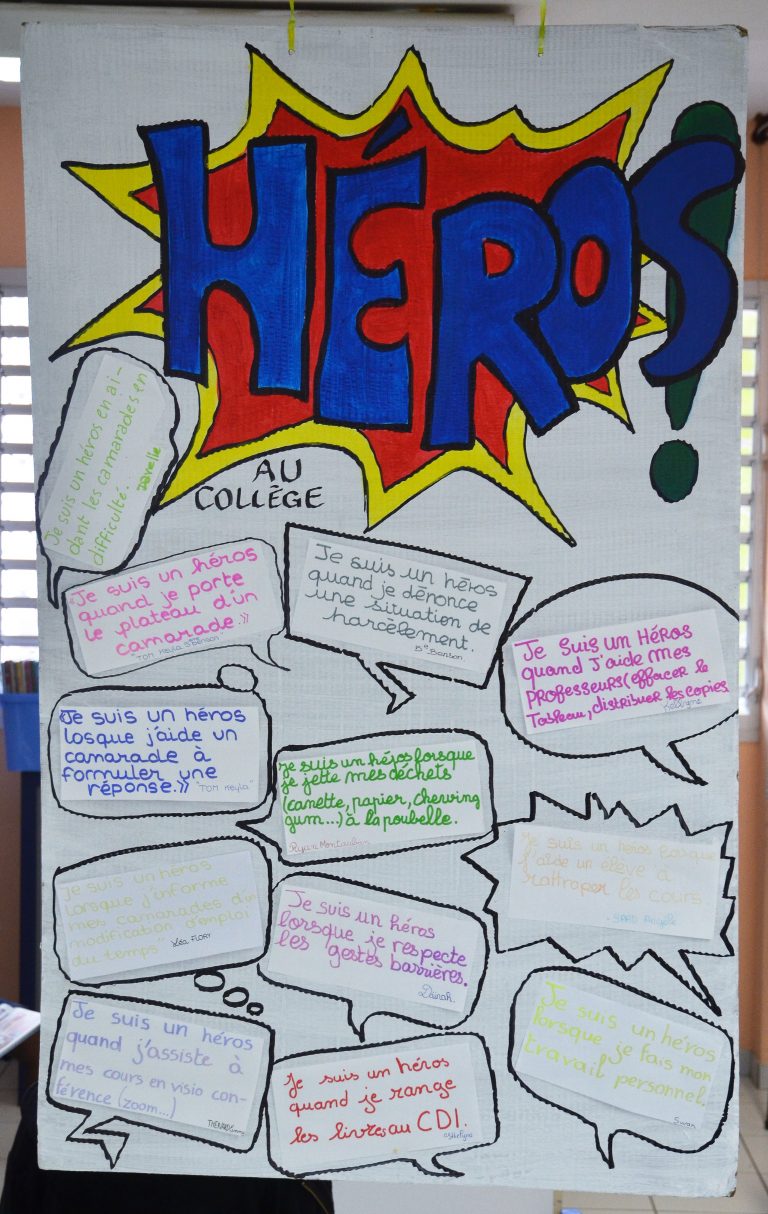 HÉROS!
AU
COLLÈGE
Je suis un héros en ai-
dant les camarades en
difficulté.
"Je suis un héros
quand je porte
le plateau d'un
camarade.»
Je suis un héros
quand je dénonce
une situation de
harcèlement.
Je suis un Héros
quand j'aide mes
professeurs (effacer le
Tableau, distribuer les copies
«Je suis un héros
losque j'aide un
camarade à
formuler une
réponse.»
"TOM Keyla"
je suis un héros lorsque
je jette mes déchets
(canette, papier, chewing
gum...) à la poubelle.
Ryan Montauban
"Je suis un héros losque
j'aide un élève à
rattraper les cours.
Je suis un héros
lorsque j'informe
mes camarades d'un
modification d'emploi
du temps"
Léa FLORY
Je suis un héros
lorsque je respecte
les gestes barrières.
Dainah.
Je suis un héros
lorsque je fais mon
travail personnel.
Swan
Je suis un héros
quand j'assiste à
mes cours en visio con-
férence (zoom...)
Je suis un héros
quand je range
les livres au CDI.